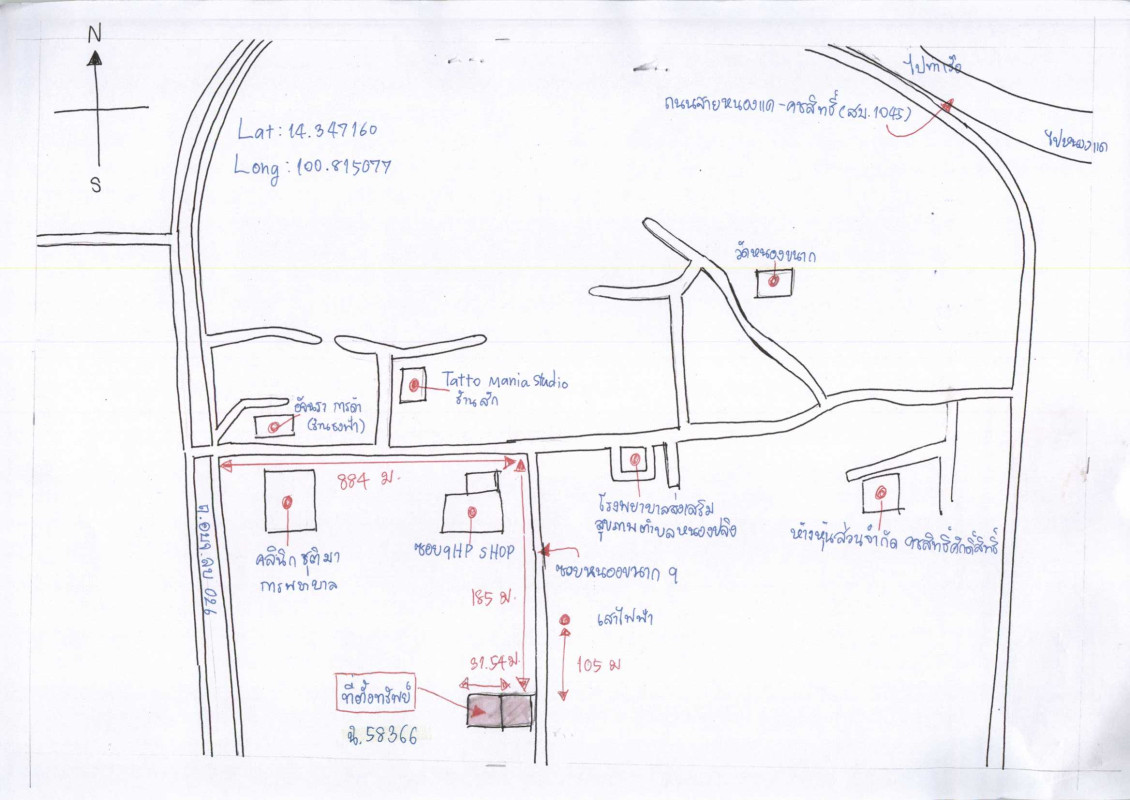 N
S
Lat: 14.347160
Long: 100.815077
ไปท่าเรือ
ถนนสายหนองแค - คชสิทธิ์ (สบ.1045)
ไปหนองแค
วัดหนองขนาก
Tatto Mania Studio
ร้านสัก
อัจฉรา การค้า
(ร้านธงฟ้า)
884 ม.
คลินิก ชุติมา
การพยาบาล
ซอย 9HP SHOP
โรงพยาบาลส่งเสริม
สุขภาพตำบลหนองปลิง
ห้างหุ้นส่วนจำกัด คชสิทธิ์ศักดิ์สิทธิ์
ซอยหนองขนาก 9
185 ม.
เสาไฟฟ้า
31.54 ม.
105 ม
ที่ตั้งทรัพย์
ฉ.58366
026